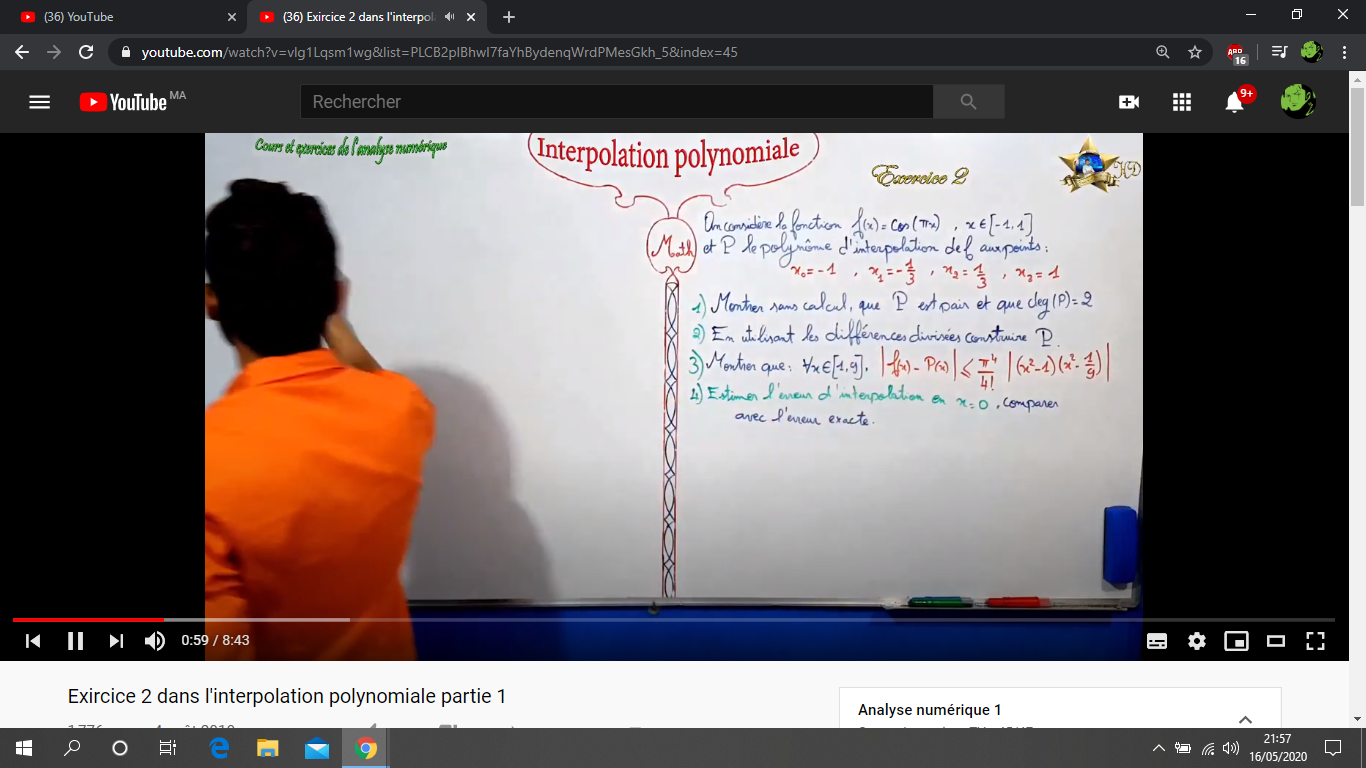 (36) YouTube
(36) Exircice 2 dans l'interpol
youtube.com/watch?v=vlg1Lqsm1wg&list=PLCB2pIBhwI7faYhBydenqWrdPMesGkh_5&index=45
ABO
16
YouTube MA
Rechercher
9+
Cours et exercices de l'analyse numérique
Interpolation polynomiale
Exercice 2
HD
Math
On considère la fonction f(x) = cos(πx) , x ∈ [-1,1]
et P le polynôme d'interpolation de f aux points :
x₀ = -1 , x₁ = -1/3 , x₂ = 1/3 , x₂ = 1
1) Montrer sans calcul, que P est pair et que deg(P) = 2
2) En utilisant les différences divisées construire P.
3) Montrer que : ∀x ∈ [1,9], |f(x) - P(x)| ≤ π⁴/4! |(x²-1)(x²-1/9)|
4) Estimer l'erreur d'interpolation en x = 0, comparer
avec l'erreur exacte.
0:59 / 8:43
Exircice 2 dans l'interpolation polynomiale partie 1
Analyse numérique 1
21:57
16/05/2020